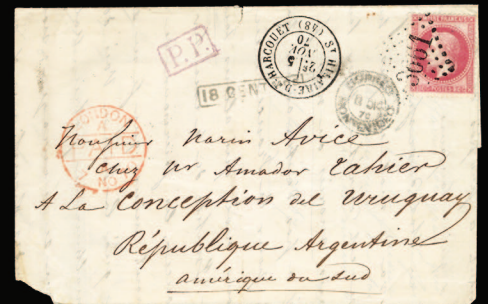 P.P.
ST HILAIRE-DU-HARCOUET (48)
5
NOV
70
3661
LONDON
NO
Monsieur Marin Avice
chez Mr Amador Tahier
A La Conception del Uruguay
République Argentine
amérique du sud